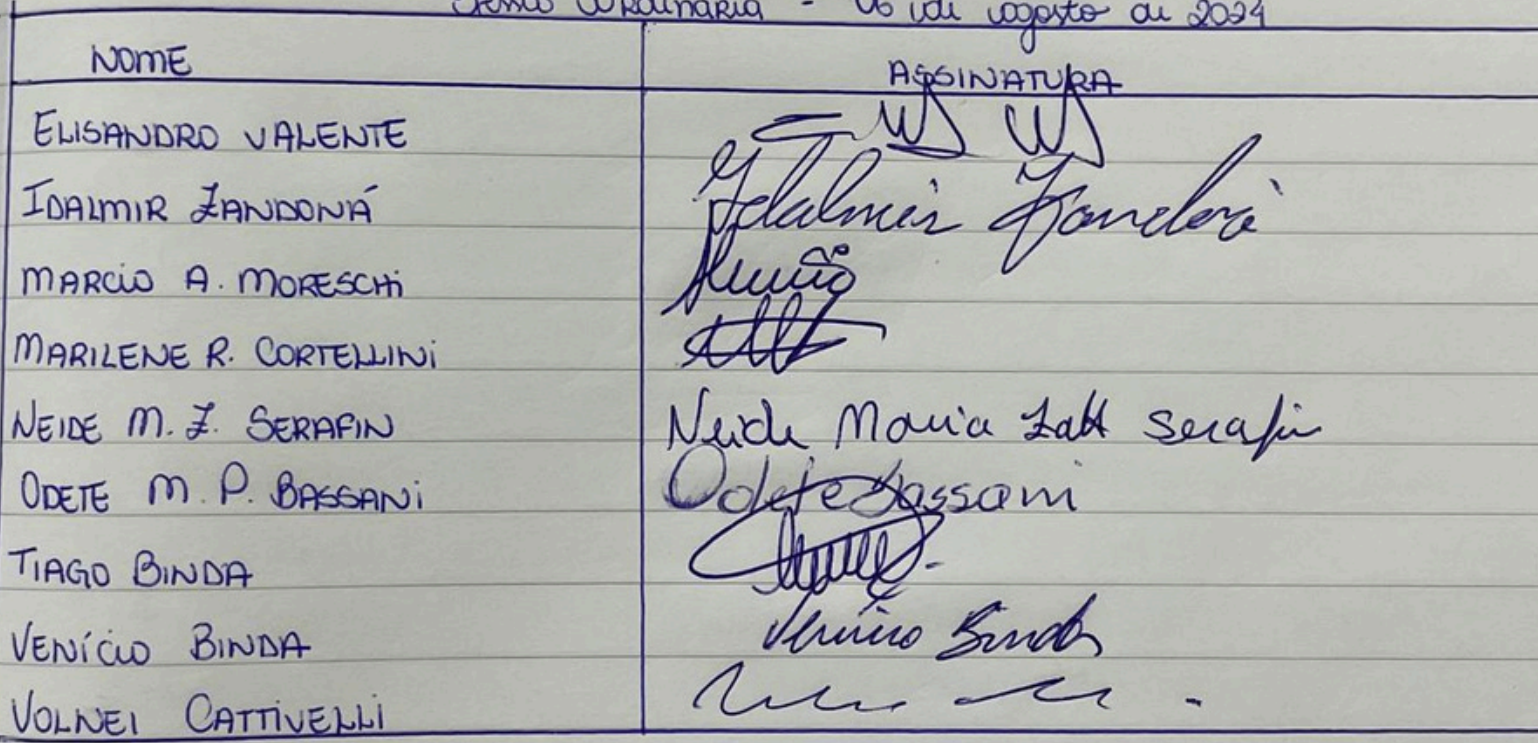 Sessão Ordinária - 06 de agosto de 2024
NOME ASSINATURA
ELISANDRO VALENTE
IDALMIR ZANDONÁ Idalmir Zandoná
MARCIO A. MORESCHi
MARILENE R. CORTELLINi
NEIDE M. Z. SERAFIN Neide Maria Zatt Serafin
ODETE M. P. BASSANi Odete Bassani
TIAGO BINDA
VENÍCIO BINDA Venício Binda
VOLNEI CATTIVELLI